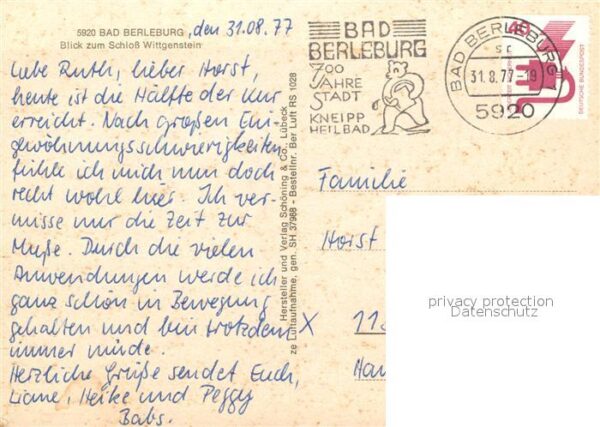 5920 BAD BERLEBURG, den 31.08.77
Blick zum Schloß Wittgenstein
Liebe Ruth, lieber Horst,
heute ist die Hälfte der Kur
erreicht. Nach großen Ein-
gewöhnungsschwierigkeiten
fühle ich mich nun doch
recht wohl hier. Ich ver-
misse nur die Zeit zur
Muße. Durch die vielen
Anwendungen werde ich
ganz schön in Bewegung
gehalten und bin trotzdem
immer müde.
Herzliche Grüße sendet Euch,
Liane, Heike und Peggy
Babs.
Hersteller und Verlag Schöning & Co., Lübeck
ze Luftaufnahme, gen. SH 37968 - Bestellnr. Ber Luft RS 1028
BAD
BERLEBURG
700
JAHRE
STADT
KNEIPP
HEILBAD
BAD BERLEBURG
sc
31.8.77-19
5920
40
DEUTSCHE BUNDESPOST
Familie
Horst
X
privacy protection
Datenschutz